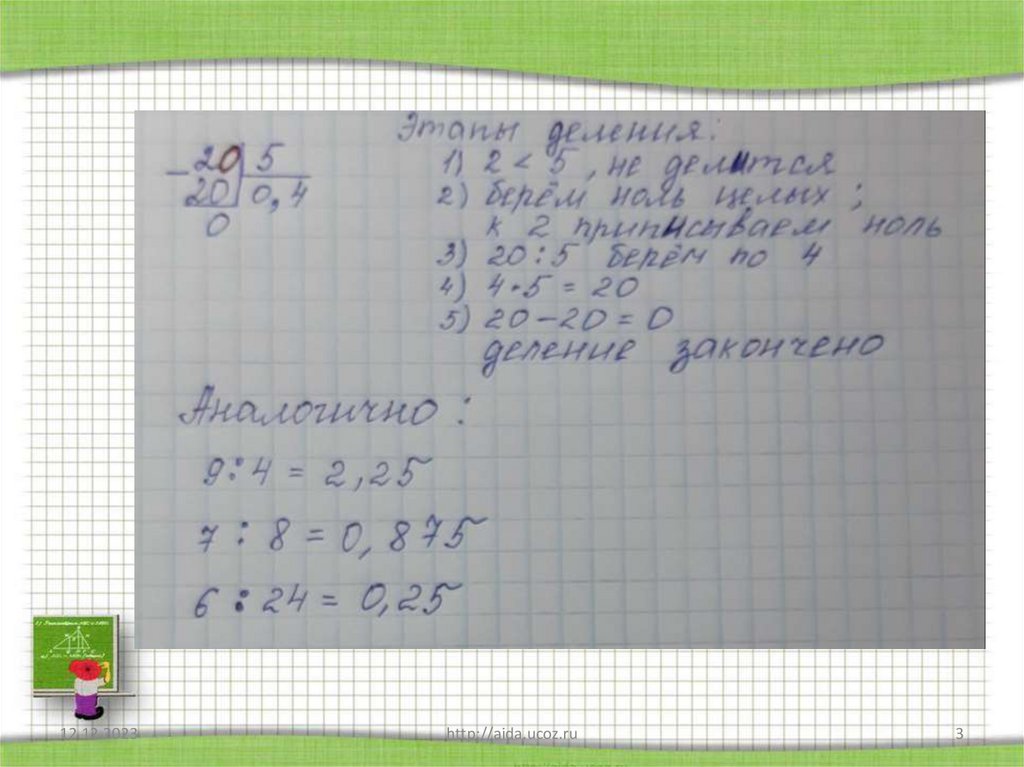 20 5
- 20 0,4
0
Этапы деления:
1) 2 < 5, не делится
2) берём ноль целых;
к 2 приписываем ноль
3) 20 : 5 берём по 4
4) 4 • 5 = 20
5) 20 - 20 = 0
деление закончено
Аналогично:
9 : 4 = 2,25
7 : 8 = 0,875
6 : 24 = 0,25
12.12.2023
http://aida.ucoz.ru
3